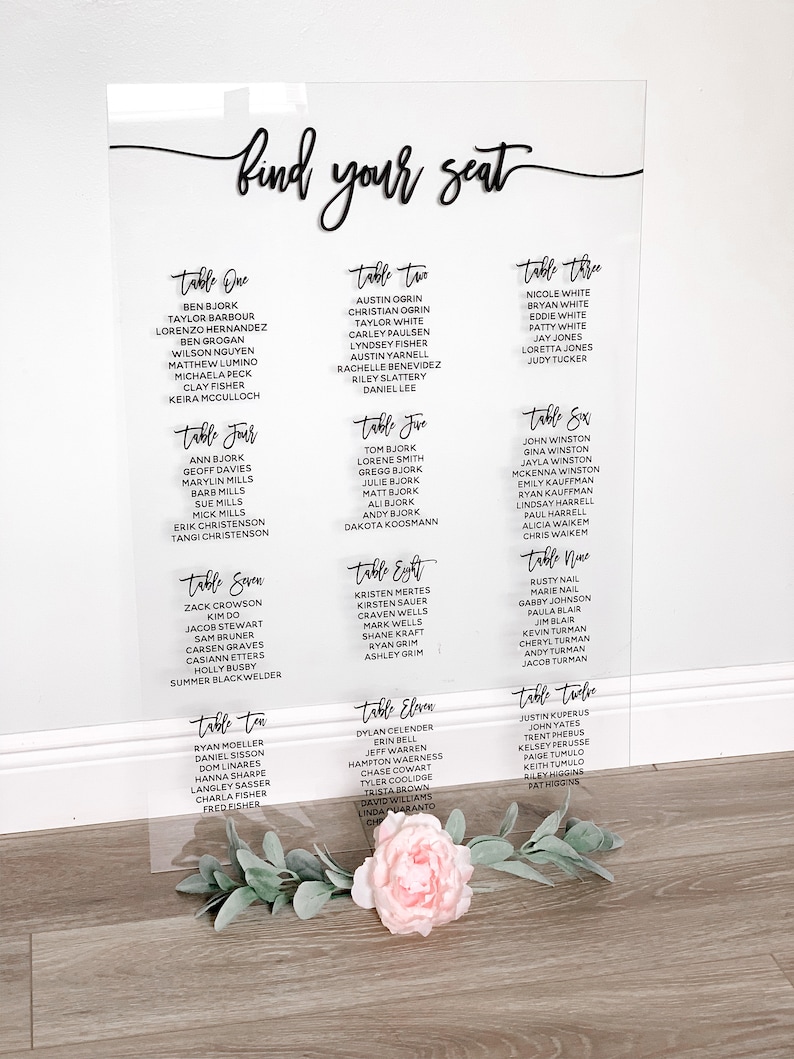 find your seat
table One
BEN BJORK
TAYLOR BARBOUR
LORENZO HERNANDEZ
BEN GROGAN
WILSON NGUYEN
MATTHEW LUMINO
MICHAELA PECK
CLAY FISHER
KEIRA MCCULLOCH
table Two
AUSTIN OGRIN
CHRISTIAN OGRIN
TAYLOR WHITE
CARLEY PAULSEN
LYNDSEY FISHER
AUSTIN YARNELL
RACHELLE BENEVIDEZ
RILEY SLATTERY
DANIEL LEE
table Three
NICOLE WHITE
BRYAN WHITE
EDDIE WHITE
PATTY WHITE
JAY JONES
LORETTA JONES
JUDY TUCKER
table Four
ANN BJORK
GEOFF DAVIES
MARYLIN MILLS
BARB MILLS
SUE MILLS
MICK MILLS
ERIK CHRISTENSON
TANGI CHRISTENSON
table Five
TOM BJORK
LORENE SMITH
GREGG BJORK
JULIE BJORK
MATT BJORK
ALI BJORK
ANDY BJORK
DAKOTA KOOSMANN
table Six
JOHN WINSTON
GINA WINSTON
JAYLA WINSTON
MCKENNA WINSTON
EMILY KAUFFMAN
RYAN KAUFFMAN
LINDSAY HARRELL
PAUL HARRELL
ALICIA WAIKEM
CHRIS WAIKEM
table Seven
ZACK CROWSON
KIM DO
JACOB STEWART
SAM BRUNER
CARSEN GRAVES
CASIANN ETTERS
HOLLY BUSBY
SUMMER BLACKWELDER
table Eight
KRISTEN MERTES
KIRSTEN SAUER
CRAVEN WELLS
MARK WELLS
SHANE KRAFT
RYAN GRIM
ASHLEY GRIM
table Nine
RUSTY NAIL
MARIE NAIL
GABBY JOHNSON
PAULA BLAIR
JIM BLAIR
KEVIN TURMAN
CHERYL TURMAN
ANDY TURMAN
JACOB TURMAN
table Ten
RYAN MOELLER
DANIEL SISSON
DOM LINARES
HANNA SHARPE
LANGLEY SASSER
CHARLA FISHER
FRED FISHER
table Eleven
DYLAN CELENDER
ERIN BELL
JEFF WARREN
HAMPTON WAERNESS
CHASE COWART
TYLER COOLIDGE
TRISTA BROWN
DAVID WILLIAMS
LINDA QUARANTO
table Twelve
JUSTIN KUPERUS
JOHN YATES
TRENT PHEBUS
KELSEY PERUSSE
PAIGE TUMULO
KEITH TUMULO
RILEY HIGGINS
PAT HIGGINS